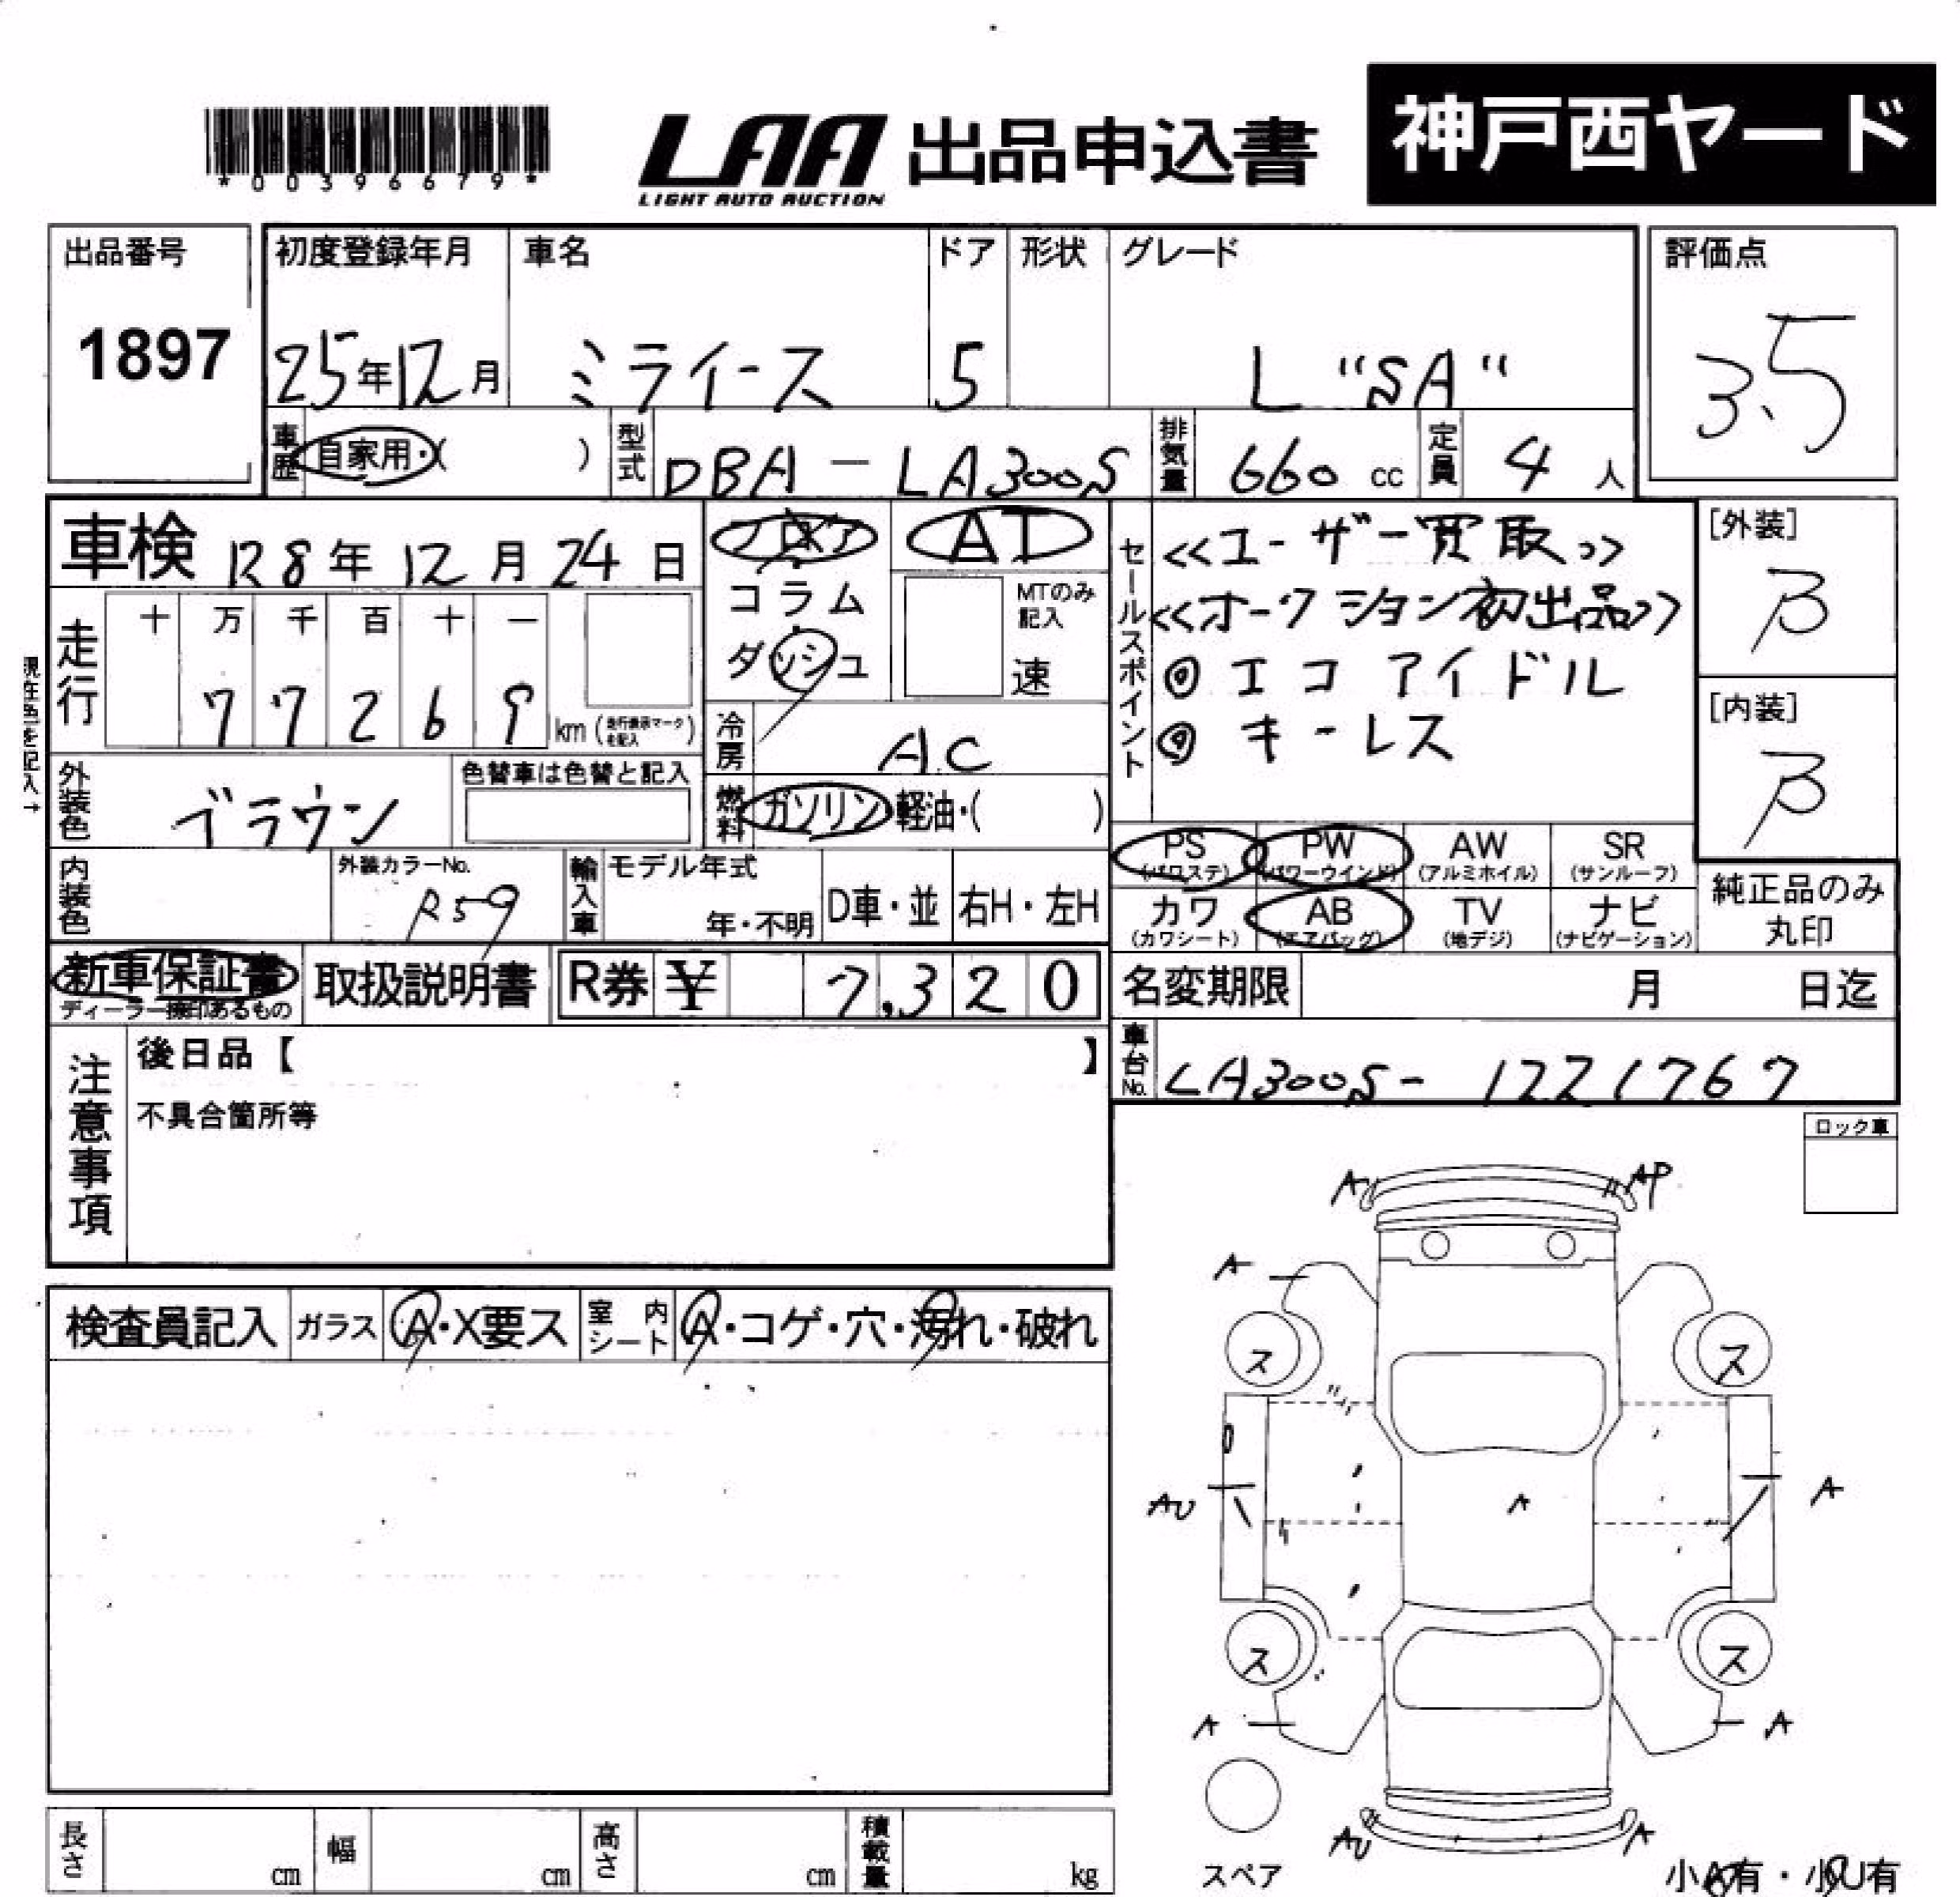 *00396679*
LAA
LIGHT AUTO AUCTION
出品申込書
神戸西ヤード
出品番号
1897
初度登録年月
25年12月
車名
ミライース
ドア
5
形状
グレード
L "SA"
評価点
3.5
車歴
自家用・( )
型式
DBA-LA300S
排気量
660 cc
定員
4 人
車検 R8年 12月 24日
フロア
コラム
ダッシュ
AT
MTのみ
記入
速
セールスポイント
<<ユーザー買取>>
<<オークション初出品>>
◎ エコアイドル
◎ キーレス
[外装]
B
[内装]
B
現在色を記入→
走行
十 万 千 百 十 一
7 7 2 6 9
km (走行表示マークを記入)
冷房
AC
外装色
ブラウン
色替車は色替と記入
燃料
ガソリン・軽油・( )
内装色
外装カラーNo.
R59
輸入車
モデル年式
年・不明
D車・並
右H・左H
PS
(パワステ)
PW
(パワーウインド)
AW
(アルミホイル)
SR
(サンルーフ)
カワ
(カワシート)
AB
(エアバッグ)
TV
(地デジ)
ナビ
(ナビゲーション)
純正品のみ
丸印
新車保証書
ディーラー捺印あるもの
取扱説明書
R券 ¥ 7,320
名変期限
月 日迄
車台No.
LA300S-1221767
注意事項
後日品【 】
不具合箇所等
ロック車
検査員記入
ガラス
A・X要ス
室内
シート
A・コゲ・穴・汚れ・破れ
A
AP
A
ス
ス
AU
A
A
ス
ス
A
A
AU
A
スペア
小A有・小U有
長さ
cm
幅
cm
高さ
cm
積載量
kg